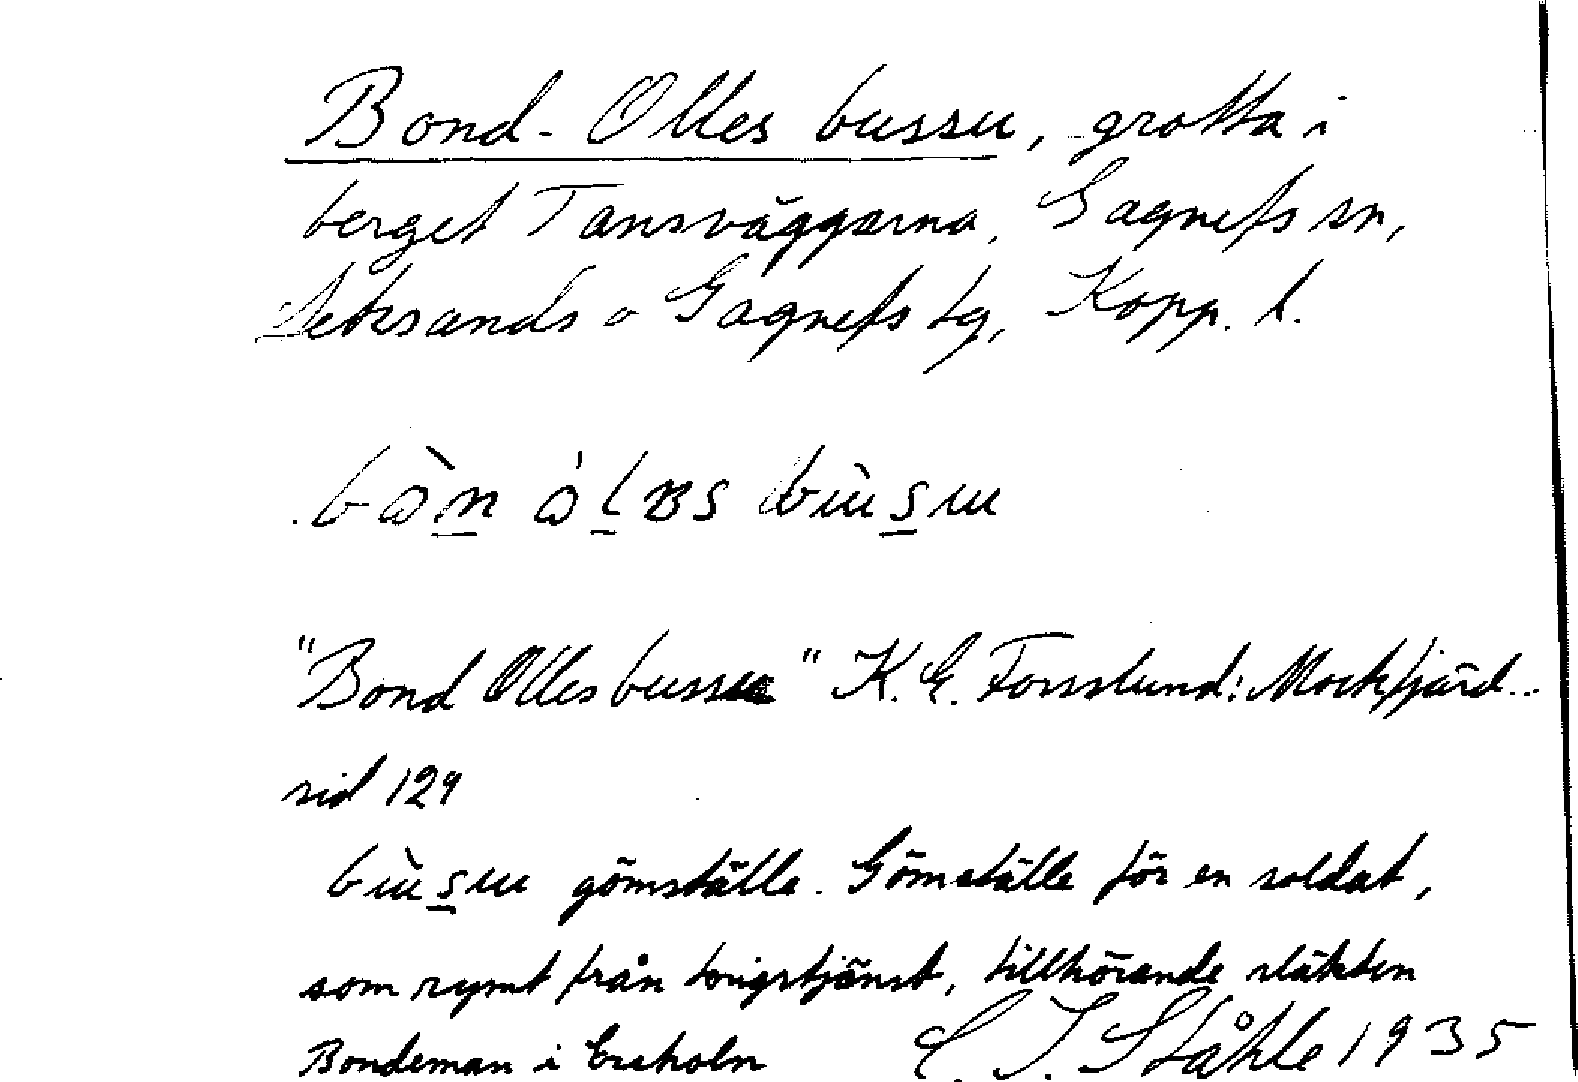 Bond-Olles bussu, grotta i
berget Tansväggarna, Gagnefs sn,
Leksands o Gagnefs tg, Kopp. l.
bùsu
"Bond Olles bussu" K. E. Forsslund: Mockfjärd..
sid 129
bùsu gömställe. Gömställe för en soldat,
som rymt från krigstjänst, tillhörande släkten
Bondeman i
C. I. Ståhle 1935